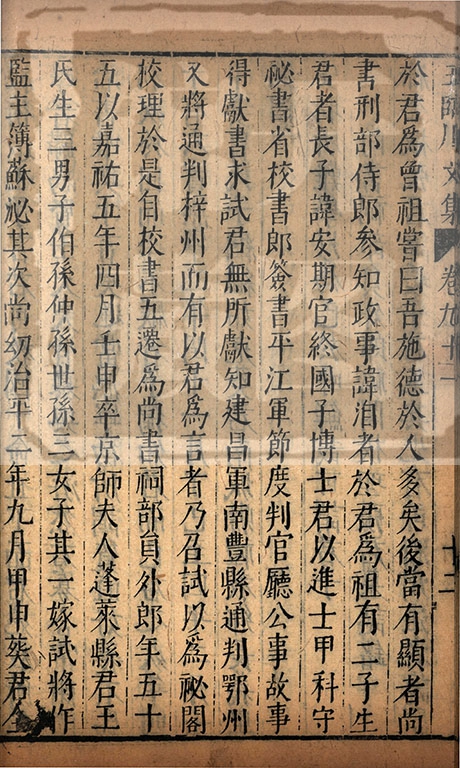 王臨川文集 卷九十一 十二
於君爲曾祖嘗曰吾施德於人多矣後當有顯者尚
書刑部侍郎參知政事諱洎者於君爲祖有二子生
君者長子諱安期官終國子博士君以進士甲科守
祕書省校書郎簽書平江軍節度判官廳公事故事
得獻書求試君無所獻知建昌軍南豐縣通判鄂州
又將通判梓州而有以君爲言者乃召試以爲祕閣
校理於是自校書五遷爲尚書祠部員外郎年五十
五以嘉祐五年四月壬申卒京師夫人蓬萊縣君王
氏生三男子伯孫仲孫世孫三女子其一嫁試將作
監主簿蘇泌其次尚幼治平二年九月甲申葬君全